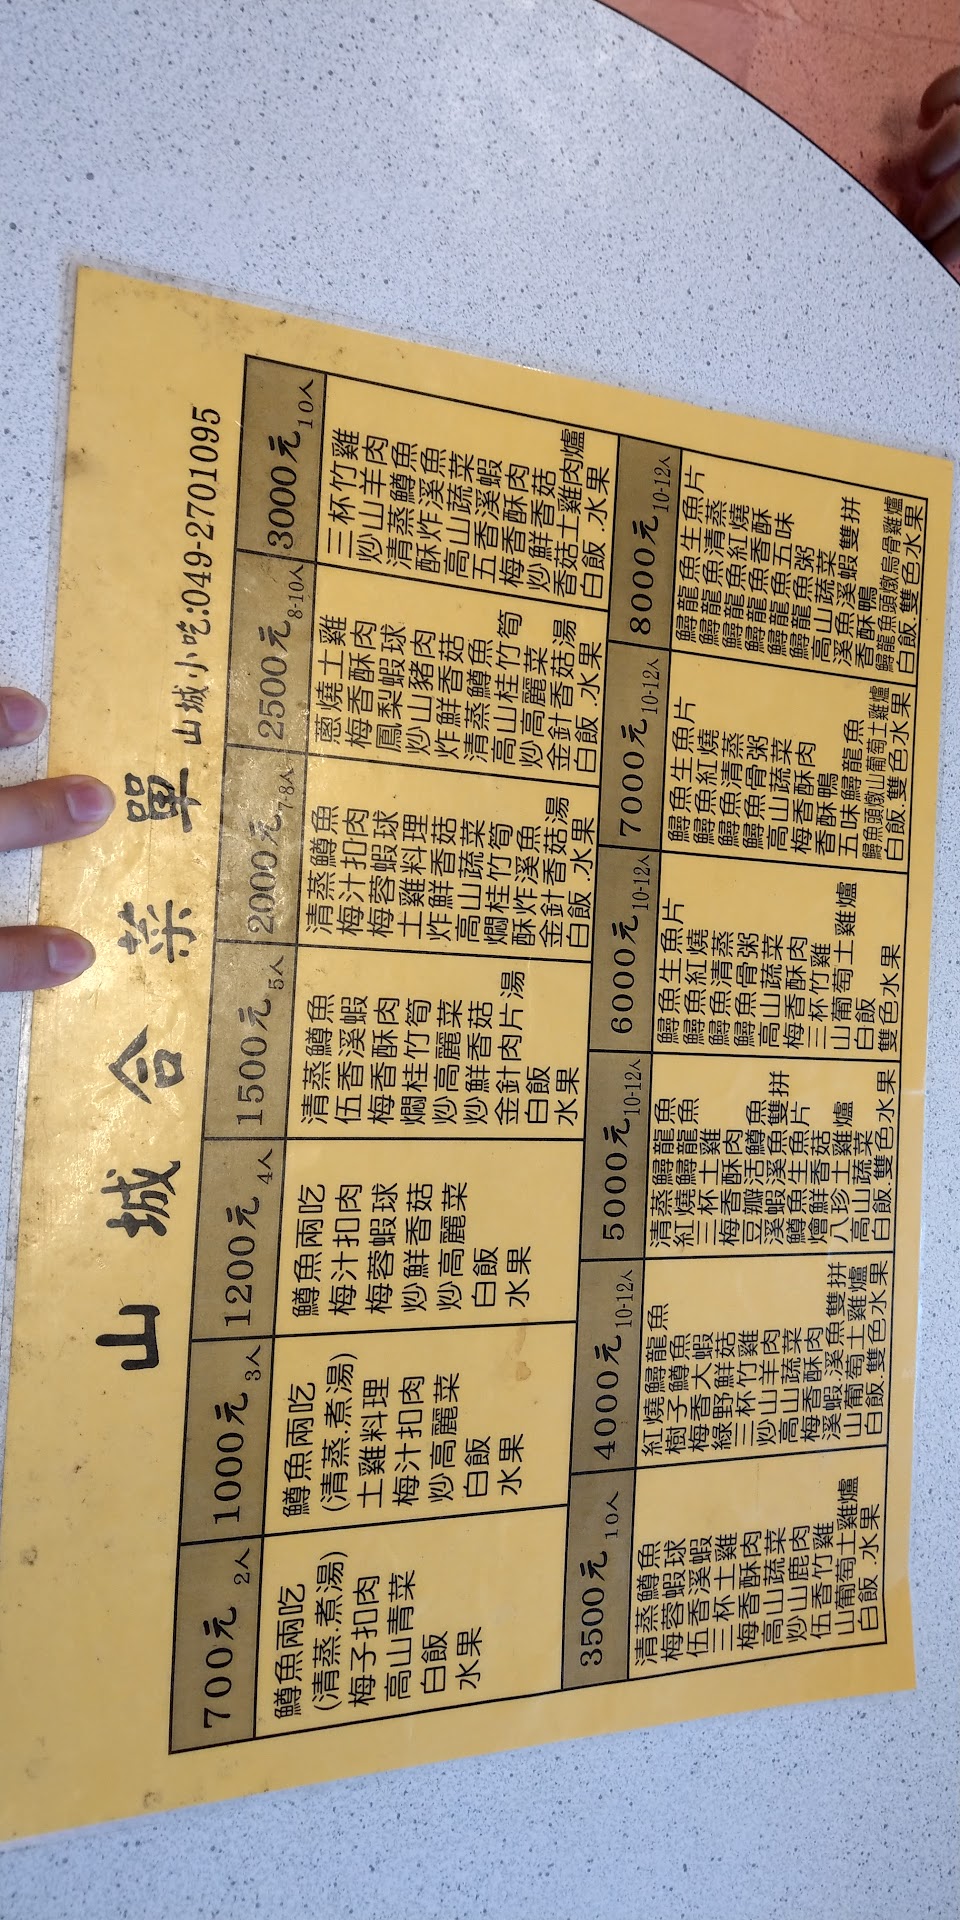 山城合菜單 山城小吃:049-2701095
700元 2人
鱒魚兩吃
(清蒸.煮湯)
梅子扣肉
高山青菜
白飯
水果
1000元 3人
鱒魚兩吃
(清蒸.煮湯)
土雞料理
梅汁扣肉
炒高麗菜
白飯
水果
1200元 4人
鱒魚兩吃
梅汁扣肉
梅蓉蝦球
炒鮮香菇
炒高麗菜
白飯
水果
1500元 5人
清蒸鱒魚
伍香溪蝦
梅香酥肉
燜桂竹筍
炒高麗菜
炒鮮香菇
金針肉片湯
白飯
水果
2000元 7-8人
清蒸鱒魚
梅汁扣肉
梅蓉蝦球
土雞料理
炸鮮香菇
高山蔬菜
燜桂竹筍
酥炸溪魚
金針香菇湯
白飯.水果
2500元 8-10人
蔥燒土雞
梅香酥肉
鳳梨蝦球
炒山豬肉
炸鮮香菇
清蒸鱒魚
高山桂竹筍
炒高麗菜
金針香菇湯
白飯.水果
3000元 10人
三杯竹雞
炒山羊肉
清蒸鱒魚
酥炸溪魚
高山蔬菜
五香溪蝦
梅香酥肉
炒鮮香菇
香菇土雞肉爐
白飯.水果
3500元 10人
清蒸鱒魚
梅蓉蝦球
伍香溪蝦
三杯土雞
梅香酥肉
高山蔬菜
炒山鹿肉
伍香竹雞
山葡萄土雞爐
白飯 水果
4000元 10-12人
紅燒鱘龍魚
樹子鱒魚
梅香大蝦
綠野鮮菇
三杯竹雞
炒山羊肉
高山蔬菜
梅香酥肉
溪蝦溪魚雙拼
山葡萄土雞爐
白飯.雙色水果
5000元 10-12人
清蒸鱘龍魚
紅燒鱘龍魚
三杯土雞
梅香酥肉
豆瓣活鱒魚
溪蝦溪魚雙拼
鱒魚生魚片
燴鮮香菇
八珍土雞爐
高山蔬菜
白飯.雙色水果
6000元 10-12人
鱘魚生魚片
鱘魚紅燒
鱘魚清蒸
鱘魚骨粥
高山蔬菜
梅香酥肉
三杯竹雞
山葡萄土雞爐
白飯
雙色水果
7000元 10-12人
鱘魚生魚片
鱘魚紅燒
鱘魚清蒸
鱘魚骨粥
高山蔬菜
梅香酥肉
香酥鴨
五味鱘龍魚
鱘魚頭燉山葡萄土雞爐
白飯.雙色水果
8000元 10-12人
鱘龍魚生魚片
鱘龍魚清蒸
鱘龍魚紅燒
鱘龍魚香酥
鱘龍魚五味
鱘龍魚粥
高山蔬菜
溪魚溪蝦雙拼
香酥鴨
鱘龍魚頭燉烏骨雞爐
白飯.雙色水果